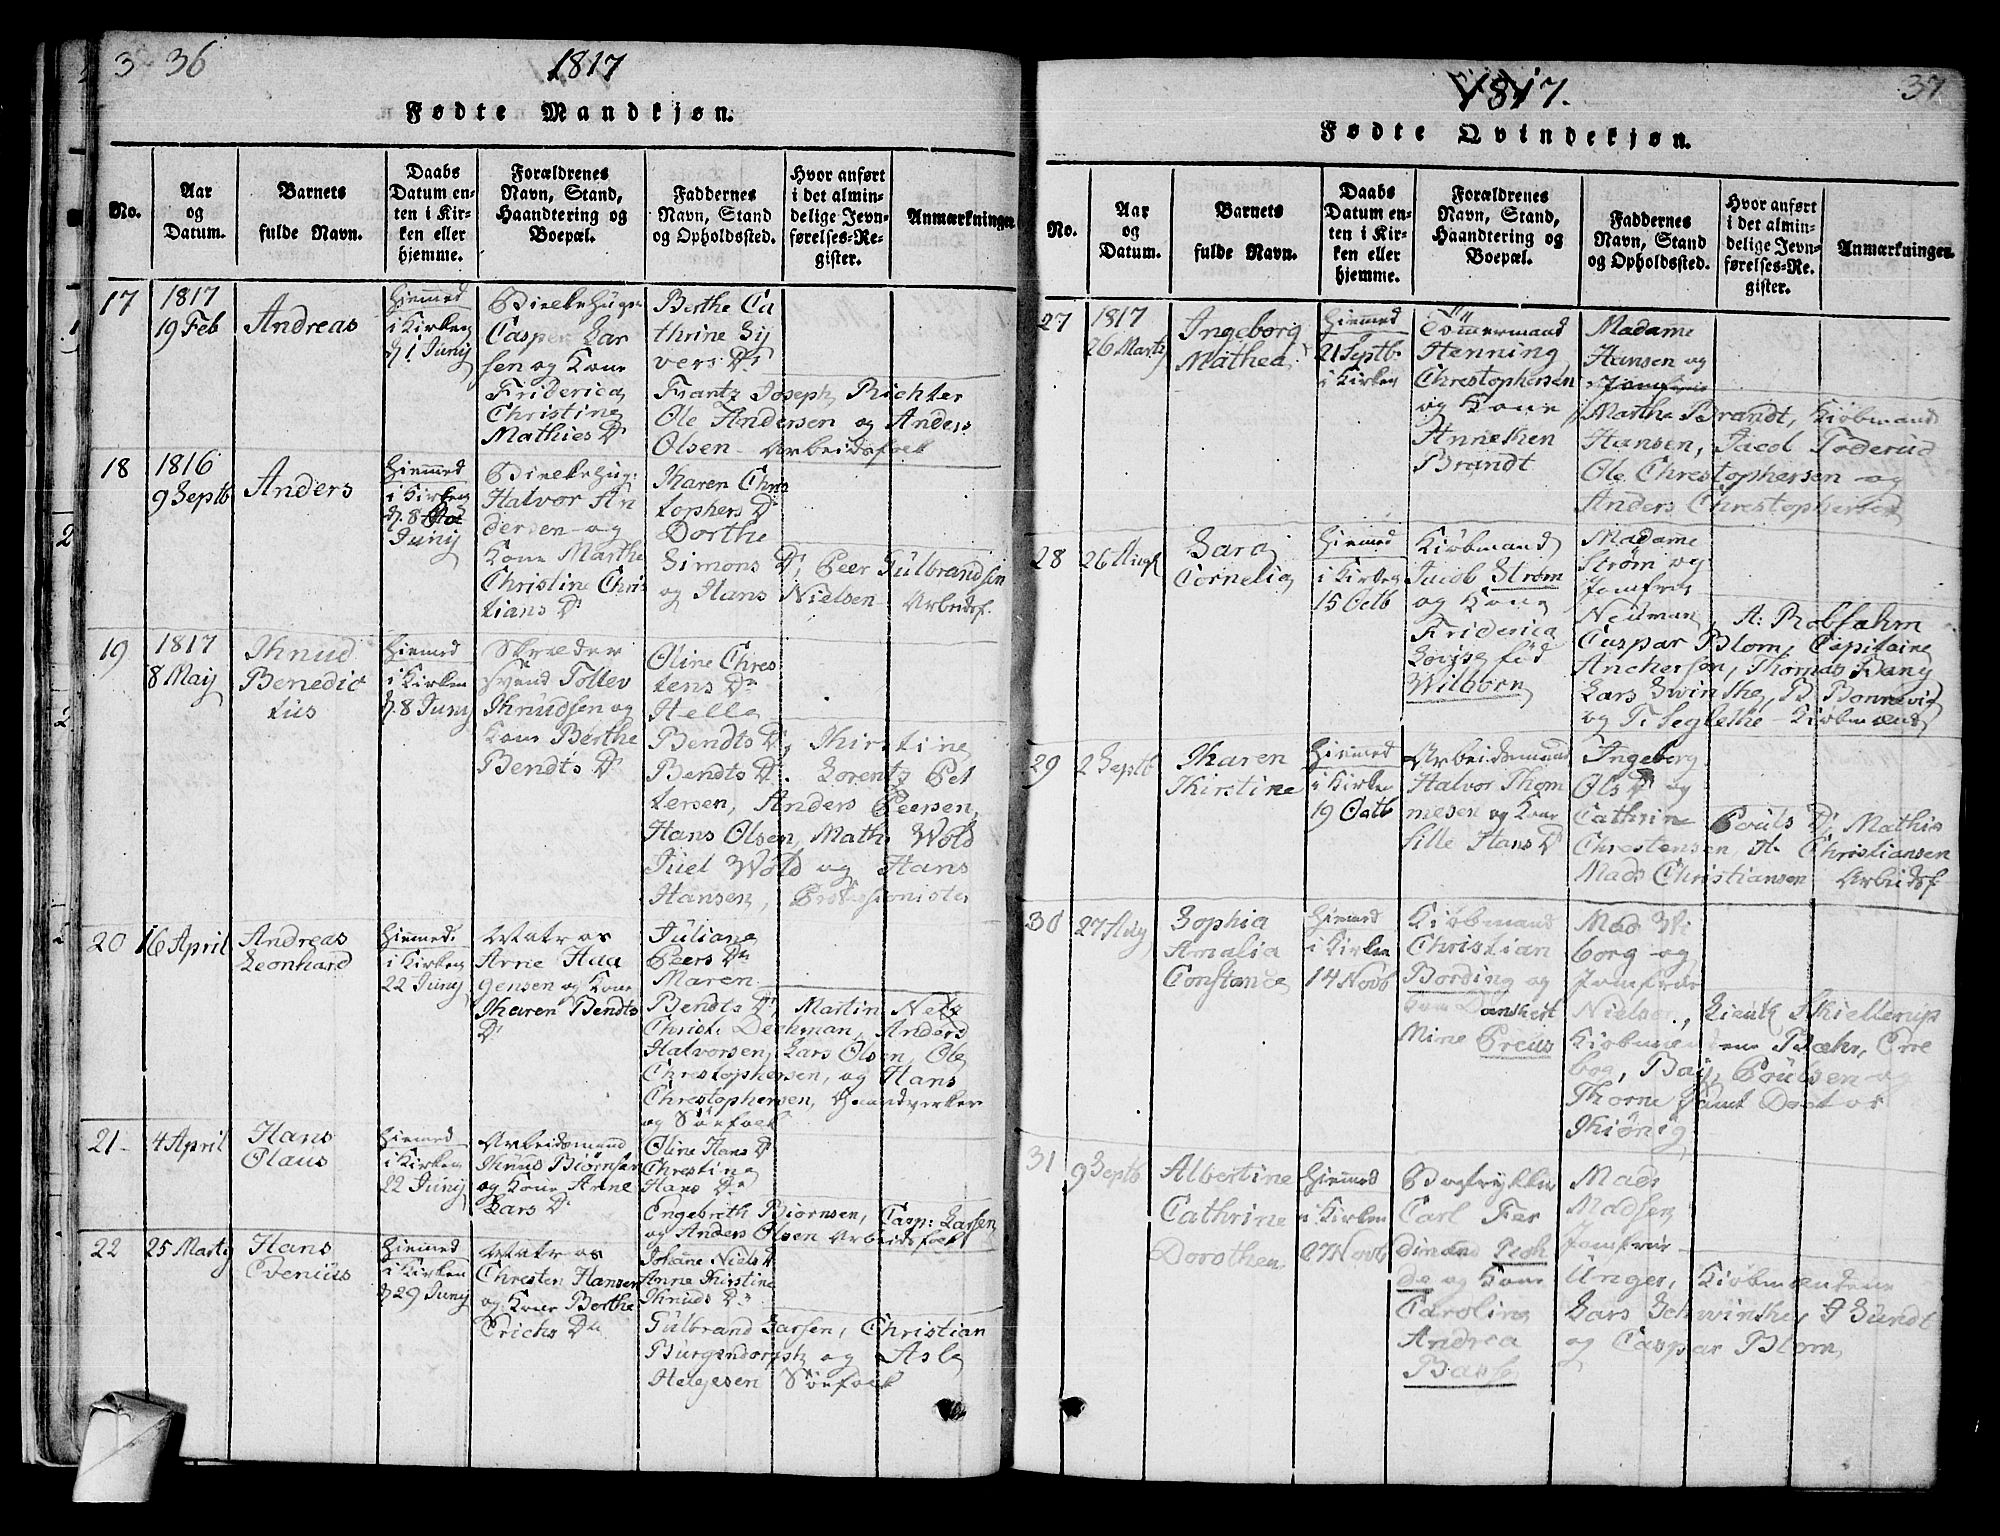 36
1817
Fødte Mandkjøn.
No.
Aar
og
Datum.
Barnets
fulde Navn.
Daabs
Datum en-
ten i Kir-
ken eller
hjemme.
Forældrenes
Navn, Stand,
Haandtering og
Boepæl.
Faddernes
Navn, Stand
og Opholdssted.
Hvor anført
i det almin-
delige Jevn-
førelses-Re-
gister.
Anmærkninger
17
1817
19 Feb
Andreas
Hiemmed
i Kirken
d 1 Juny
Casper Lar
sen og Kone
Friderica
Christine
Mathies Dr
Berthe Ca
thrine Sy
vers Dr
Frantz Joseph Richter
Ole Andersen og Anders
Olsen - Arbeidsfolk
18
1816
9 Septb
Anders
Hiemmed
i Kirken
d. 8
Juny
Halvor An
dersen og
Kone Marthe
Christine Chris
tians Dr
Karen Chris
tophers Dr
Dorthe
Simons Dr, Peer Gulbrandsen
og Hans Nielsen Arbeidsf.
19
1817
8 Maij
Knud
Benedic
tus
Hiemmed
i Kirken
d. 8 Juny
Skræder
Svend Tollev
Knudsen og
Kone Berthe
Bendts Dr
Oline Chres
tens Dr
Helle
Bendts Dr, Kirstine
Bendts Dr. Lorentz Pet
tersen, Anders Peersen,
Hans Olsen, Math: Wold
Juel Wold og Hans
Hansen, Professionister
20
16 April
Andreas
Leonhard
Hiemmed.
i Kirken
22 Juny
Matros
Arne Haa
gensen og Kone
Karen Bendts
Dr
Juliane
Peers Dr
Maren
Bendts Dr, Martin Netz
Christ: Dechman, Anders
Halvorsen, Lars Olsen, Ole
Christophersen, og Hans
Christophersen, Haandverker
og Søefolk
21
4 April
Hans
Olaus
Hiemmed
i Kirken
22 Juny
Arbeidsmand
Knud Biørnsen
og Kone Anne
Lars Dr
Oline Hans Dr
Chrestine
Hans Dr
Engebreth Biørnsen, Casp: Larsen
og Anders Olsen Arbeidsfolk
22
25 Marty
Hans
Evenius
Hiemmed
i Kirken
d 29 Juny
Matros
Chresten Hansen
og Kone Berthe
Erichs Dr
Johane Niels Dr
Anne Kirstine
Knuds Dr
Gulbrand Larsen, Christian
Burgendorph og Asle
Helgesen Søefolk
37
1817.
Fødte Qvindekjøn.
No.
Aar
og
Datum.
Barnets
fulde Navn.
Daabs
Datum en-
ten i Kir-
ken eller
hjemme.
Forældrenes
Navn, Stand,
Haandtering og
Boepæl.
Faddernes
Navn, Stand
og Opholdssted.
Hvor anført
i det almin-
delige Jevn-
førelses-Re-
gister.
Anmærkninger.
27
1817
26 Marts
Ingeborg
Mathea
Hiemmed
21 Septb.
i Kirken
Tømmermand
Henning
Chrestophersen
og Kone
Anneken
Brandt
Madame
Hansen og
Jomfrue
Marthe Brandt, Kiøbmand
Hansen, Jacob Toderud
Ole Chrestophersen og
Anders Chrestophersen
28
26 Aug
Sara
Cornelia
Hiemmed
i Kirken
15 Octb
Kiøbmand
Jacob Strøm
og Kone
Friderica
Lovise fød
Wilborn
Madame
Strøm og
Jomfrue
Neuman, A: Robsahm
Caspar Blom, Capitaine
Anchersen, Thomas Bang
Lars Swinthe, B Bonnevie
og T. Seglethe - Kiøbmænd
29
2 Septb
Karen
Kirstine
Hiemmed
i Kirken
19 Octb
Arbeidsmand
Halvor Thom
mesen og Kone
Sille Hans Dr
Ingeborg
Ols Dr og
Cathrine Pouls Dr, Mathis
Chrestensen, A. Christiansen
Mads Christiansen Arbeidsf
30
27 Aug
Sophia
Amalia
Constance
Hiemmed
i Kirken
14 Novb
Kiøbmand
Christian
Bording og
Kone Danchert
Mine Preus
Mad Wi
borg og
Jomfrue
Nielsen, Lieut Skiellerup
Kiøbmændene Bæhr, Erre
boe, Bay, Poulsen og
Thorne samt Doctor
Kiønig
31
9 Septb
Albertine
Cathrine
Dorothea
Hiemmed
i Kirken
27 Novb
Bogtrykker
Carl Fer
dinand
de og Kone
Caroline
Andrea
Basse
Mads
Madsen
Jomfrue
Unger, Kiøbmændene
Lars Schwinthe, J Sundt
og Caspar Blom